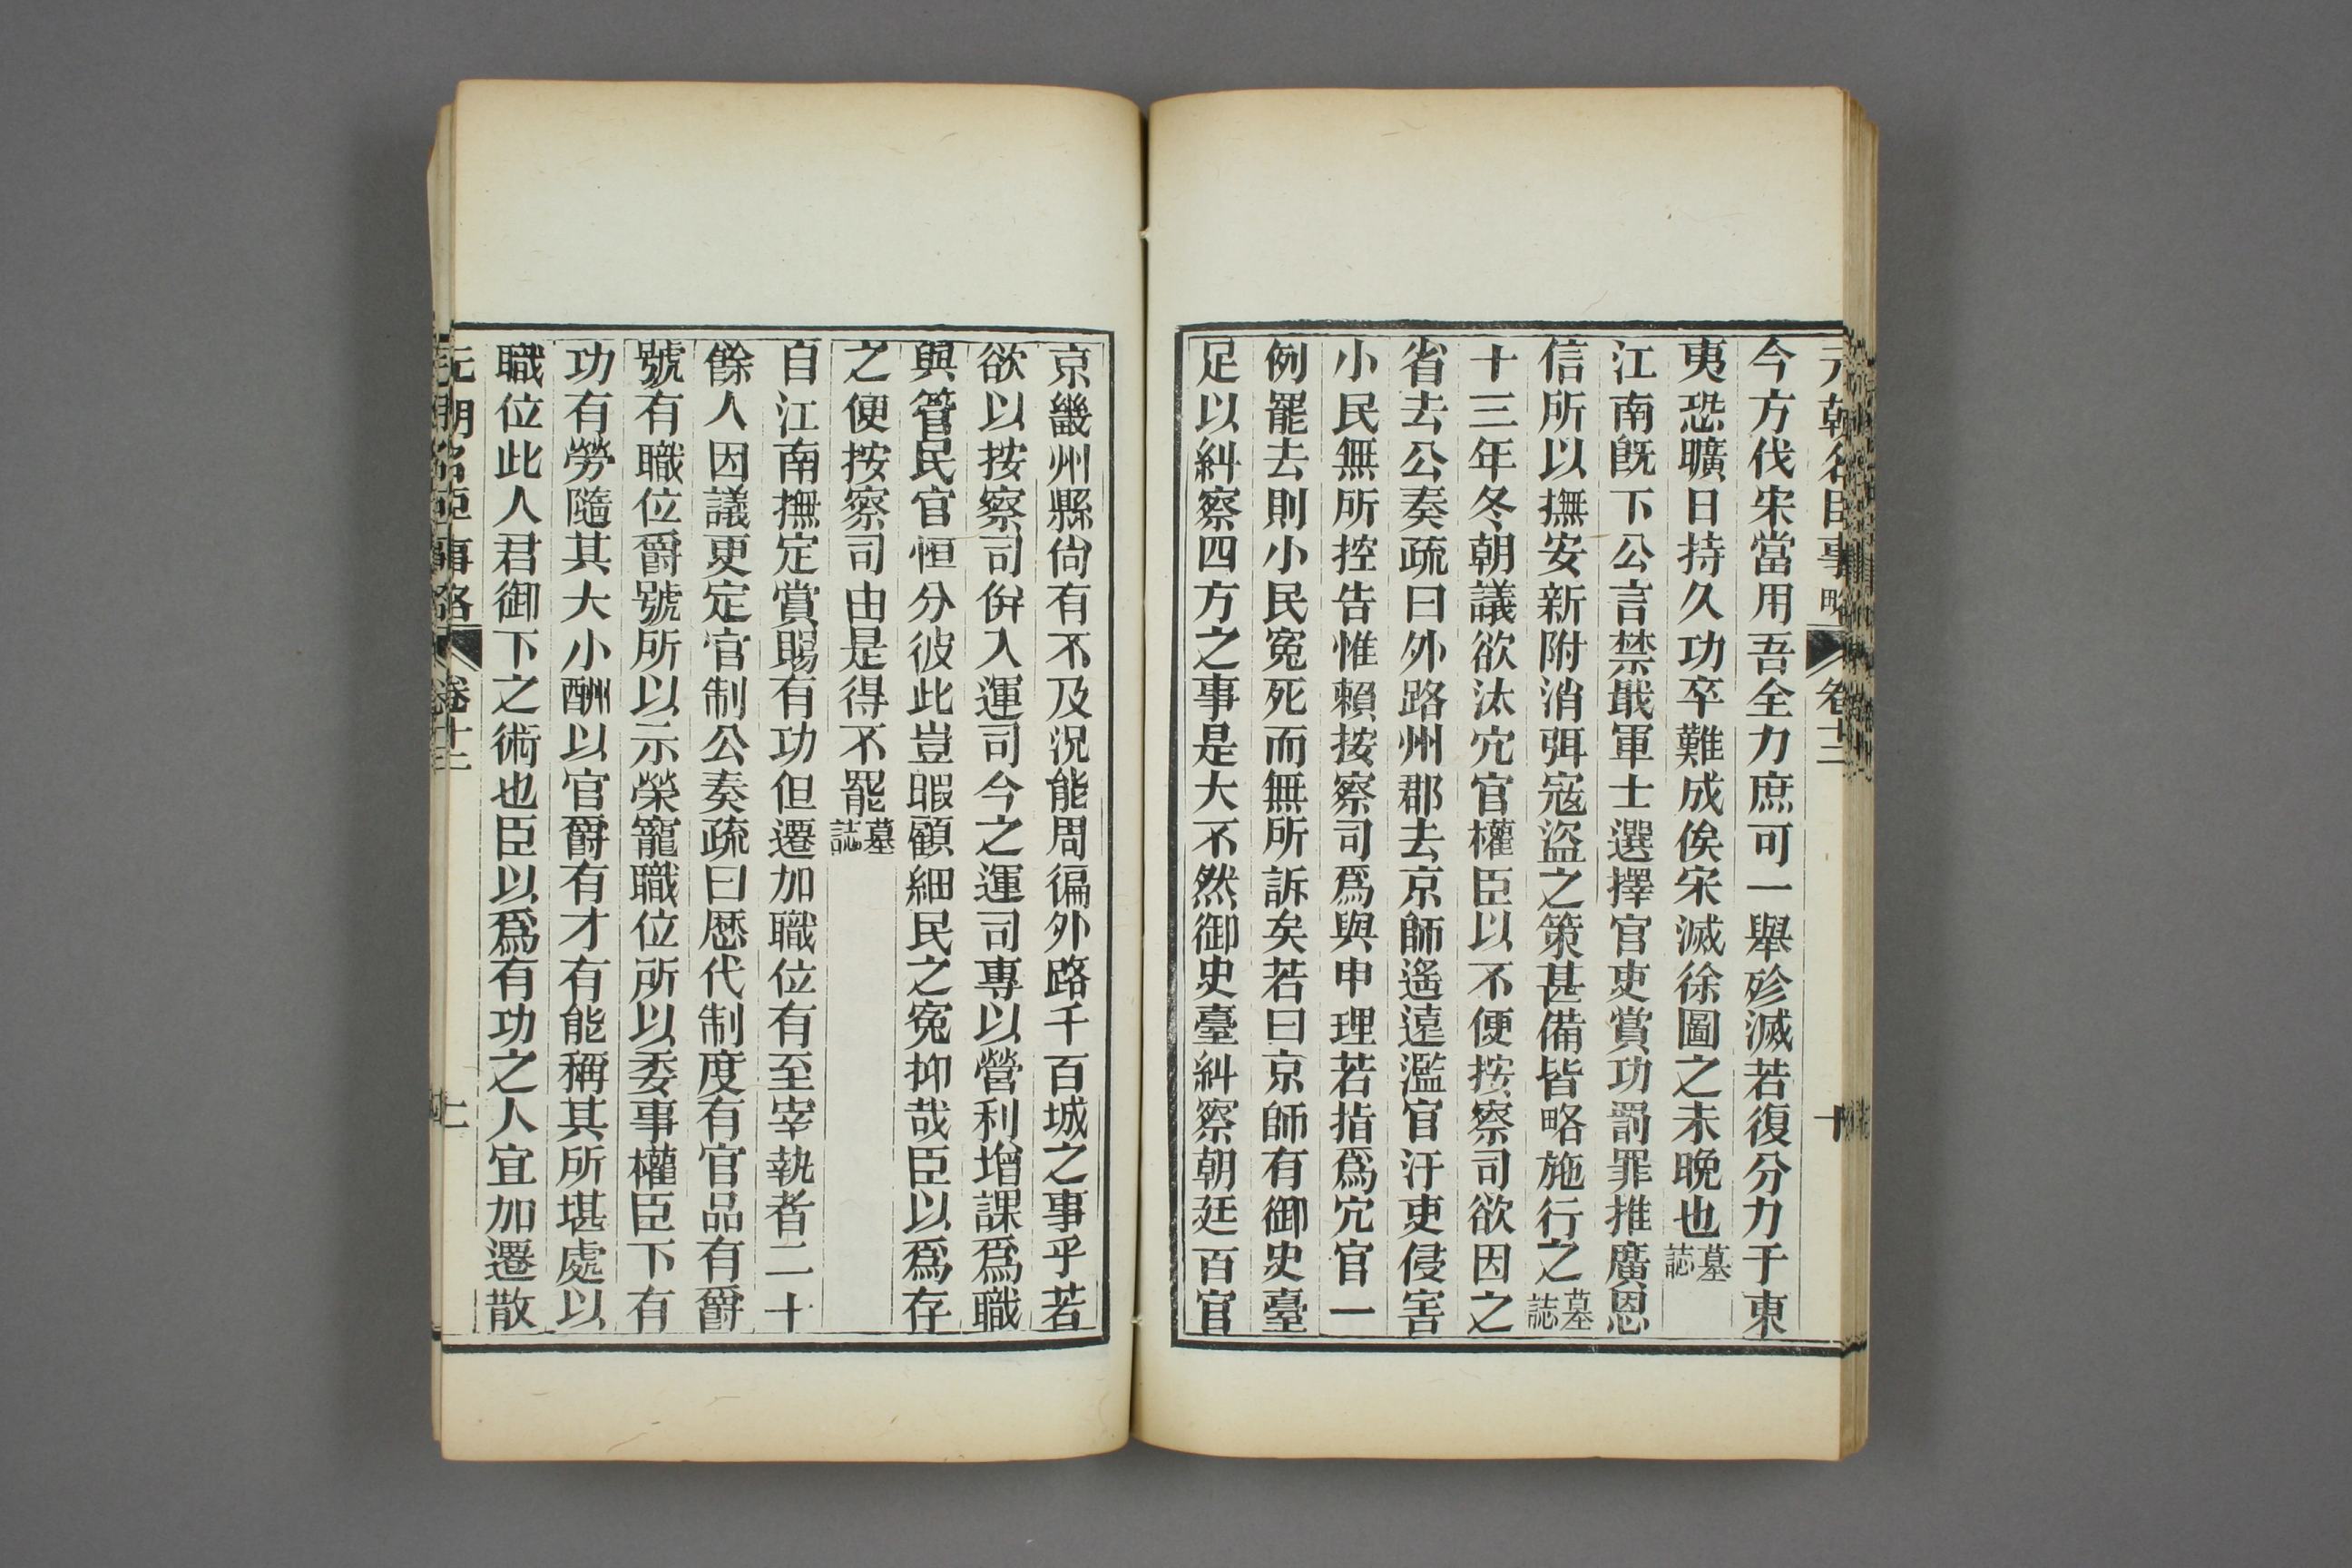 元朝名臣事略 卷十二 十
今方伐宋當用吾全力庶可一舉殄滅若復分力于東
夷恐曠日持久功卒難成俟宋滅徐圖之未晚也墓誌
江南旣下公言禁戢軍士選擇官吏賞功罰罪推廣恩
信所以撫安新附消弭寇盜之策甚備皆略施行之墓誌
十三年冬朝議欲汰宂官權臣以不便按察司欲因之
省去公奏疏曰外路州郡去京師遙遠濫官汙吏侵害
小民無所控告惟賴按察司爲與申理若指爲宂官一
例罷去則小民寃死而無所訴矣若曰京師有御史臺
足以糾察四方之事是大不然御史臺糾察朝廷百官
京畿州縣尙有不及況能周徧外路千百城之事乎若
欲以按察司倂入運司今之運司專以營利增課爲職
與管民官恒分彼此豈暇顧細民之寃抑哉臣以爲存
之便按察司由是得不罷墓誌
自江南撫定賞賜有功但遷加職位有至宰執者二十
餘人因議更定官制公奏疏曰歷代制度有官品有爵
號有職位爵號所以示榮寵職位所以委事權臣下有
功有勞隨其大小酬以官爵有才有能稱其所堪處以
職位此人君御下之術也臣以爲有功之人宜加遷散
元朝名臣事略 卷十二